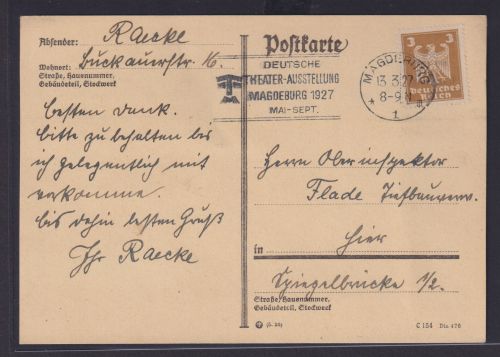 Absender: Raecke
Wohnort: Buckauerstr. 16.
Straße, Hausnummer,
Gebäudeteil, Stockwerk
besten Dank.
bitte zu behalten bis
ich gelegentlich mit
vorkomme.
bis dahin besten Gruß
Ihr Raecke
Postkarte
DEUTSCHE
THEATER-AUSSTELLUNG
MAGDEBURG 1927
MAI-SEPT.
MAGDEBURG
13.3.27
8-9
* 1
3 3
Deutsches
Reich
Herrn Oberinspektor
Flade Tiefbauverw.
hier
in
Spiegelbrücke 1/2.
Straße, Hausnummer,
Gebäudeteil, Stockwerk
C 154 Din 476